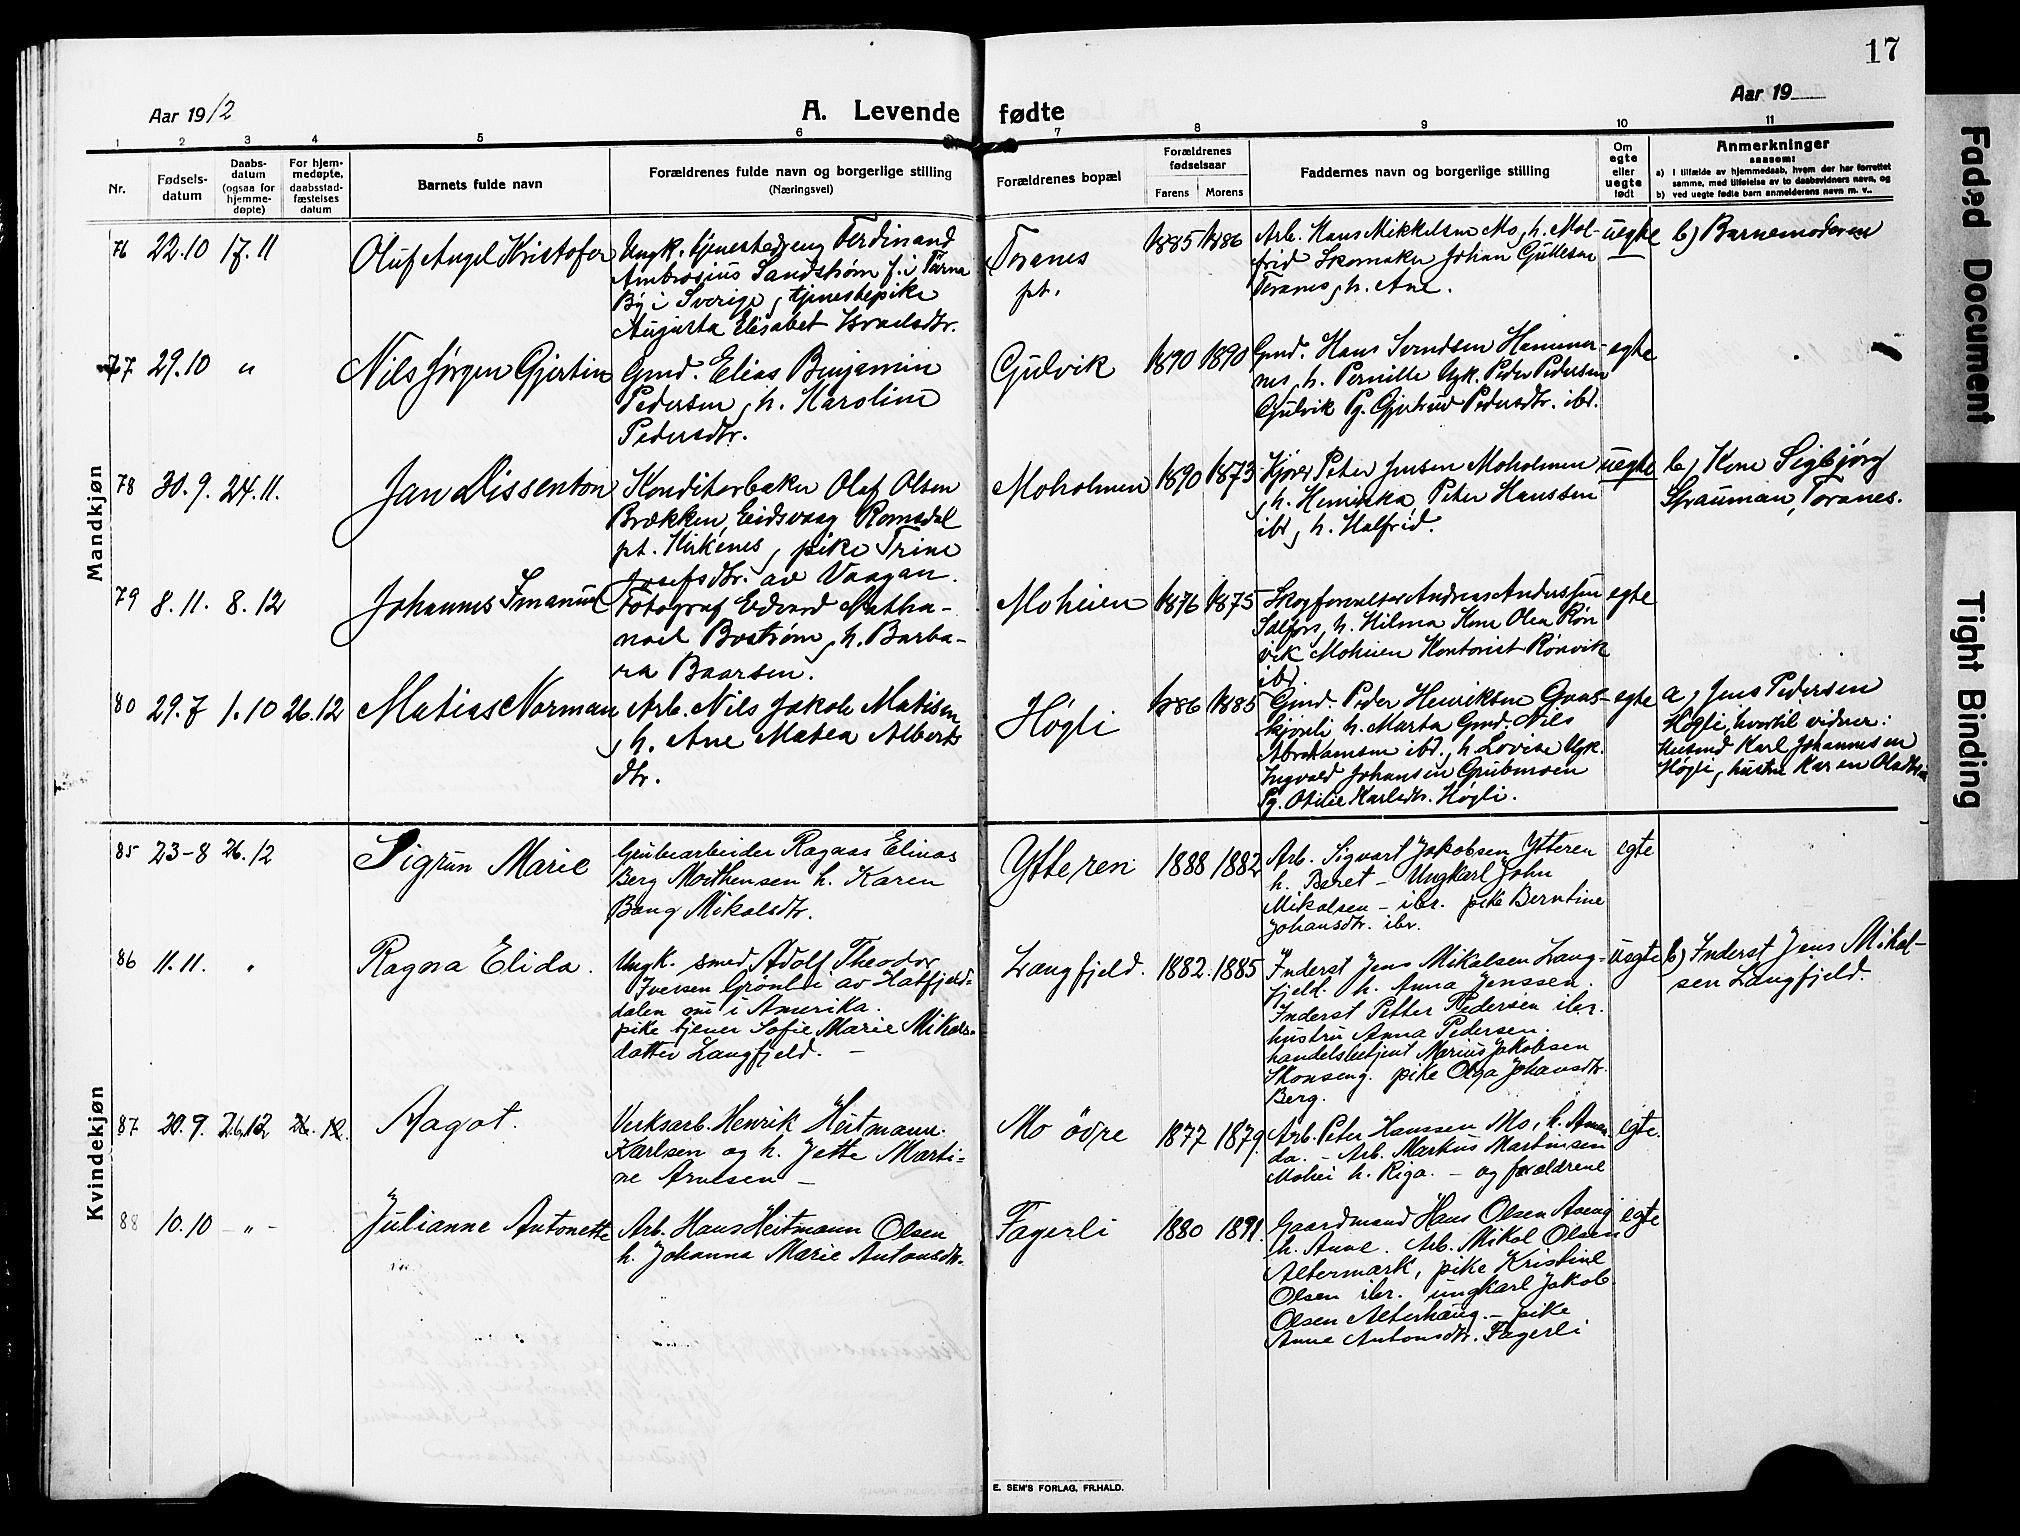 17
Aar 1912
A. Levende fødte
Aar 19
1 2 3 4 5 6 7 8 9 10 11
Nr.
Fødsels-
datum
Daabs-
datum
(ogsaa for
hjemme-
døpte)
For hjem-
medøpte,
daabsstad-
fæstelses
datum
Barnets fulde navn
Forældrenes fulde navn og borgerlige stilling
(Næringsvei)
Forældrenes bopæl
Forældrenes
fødselsaar
Farens Morens
Faddernes navn og borgerlige stilling
Om
egte
eller
uegte
født
Anmerkninger
saasom:
a) i tilfælde av hjemmedaab, hvem der har forrettet
samme, med tilføielse av to daabsvidners navn, og
b) ved uegte fødte barn anmelderens navn m. v..
Mandkjøn
76 22.10 17.11 Oluf Angel Kristofer
Ungk. tjenestedreng Ferdinand
Ambrosius Sandstrøm f. i Tärna
By i Sverige, tjenestepike
Augusta Elisabet Israelsdtr.
Toranes
pt.
1885 1886
Arb. Hans Mikkelsen Mo, h. Mol-
frid Skomaker Johan
Toranes, h. Ane.
uegte
b) Barnemoderen
77 29.10 " Nils Jørgen Gjertin
Gmd. Elias Benjamin
Pedersen, h. Karoline
Pedersdtr.
Gulvik
1890 1890
Gmd. Hans Svendsen Hammer-
nes, h. Pernille Ugk. Peder Pedersen
Gulvik Pg. Gjertrud Pedersdtr. ibd.
egte
78 30.9. 24.11. Jan Dissenton
Konditorbaker Olaf Olsen
Brækken, Eidsvaag Romsdal
pt. Kirkenes, pike Trine
Josefsdtr. av Vaagan.
Moholmen
1890 1873
Kjører Peter Jensen Moholmen
, h. Henrikka Peter Hanssen
ibd, h. Halfrid.
uegte
b, Kone Sigbjørg
Strauman, Toranes.
79 8.11. 8.12 Johannes Imanuel
Fotograf Edvard Natha-
nael Boström, h. Barba-
ra Baarsen.
Moheien
1876 1875
Skogforvalter Andreas Anderssen
Salfors, h. Hilma Kone Olea Røn
vik Moheien Kontorist Rønvik
ibd.
egte
80 29.7 1.10 26.12 Matias Norman
Arb. Nils Jakob Matisen
, h. Ane Matea Alberts
dtr.
Høgli
1886 1885
Gmd. Peder Henriksen Gvas-
skjønli h. Marta Gmd. Nils
Abrahamsen ibd., h. Lovise Ugk.
Ingvald Johansen Grubmoen
Pg. Otilie Karlsdtr. Høgli.
egte
a, Jens Pedersen
Høgli, hvortil vidner:
Husmd Karl Johannesen
Høgli, hustru Karen
Kvindekjøn
85 23-8 26.12 Sigrun Marie
Grubearbeider Ragaas Elinas
Berg Morthensen h. Karen
Bang Mikalsdtr.
Ytteren
1888 1882
Arb. Sigvart Jakobsen Ytteren
h. Beret – Ungkarl John
Mikalsen – ibr. pike Berntine
Johansdtr. ibr.
egte
86 11.11. " Ragna Elida.
Ungk. smed Adolf Theodor
Iversen Grønli av Hatfjeld-
dalen nu i Amerika.
pike tjener Sofie Marie Mikals-
datter Langfjeld. –
Langfjeld.
1882. 1885
Inderst Jens Mikalsen Lang-
fjeld. h. Anna Jenssen.
Inderst Petter Pedersen ibr.
hustru Anna Pedersen.
handelsbetjent Marius Jakobsen
Skonseng. pike Olga Johansdtr.
Berg.
uegte
b) Inderst Jens Mikal-
sen Langfjeld.
87 20.9. 26.12 26. 12. Aagot.
Verksarb. Henrik Heitmann
Karlsen og h. Jette Marti-
ne Arnesen –
Mo övre
1877 1879.
Arb. Peter Hanssen Mo, h. Aman
da. – Arb. Markus Martinsen
Mohei h. Riga. – og forældrene
egte.
88 10.10 – " – Julianne Antonette
Arb. Hans Heitmann Olsen
h. Johanna Marie Antonsdtr.
Fagerli
1880 1891.
Gaardmand Hans Olsen Aveng
h. Anne. Arb. Mikal Olsen
Altermark, pike Kristine
Olsen ibr. ungkarl Jakob
Olsen Alterhaug. – pike
Anne Antonsdtr. Fagerli
egte
E. SEM'S FORLAG, FR.HALD.
Faded Document
Tight Binding